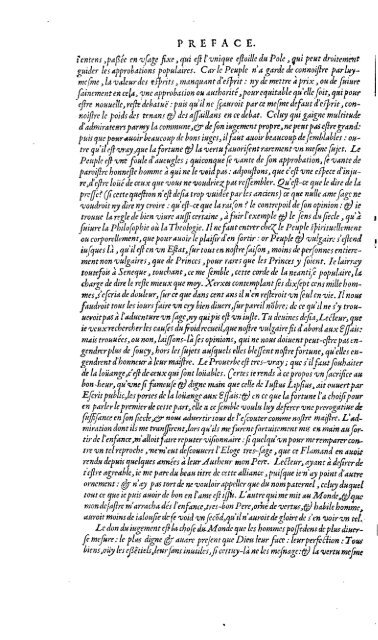 PREFACE.
i'entens, passée en vsage fixe, qui est l'vnique estoille du Pole, qui peut droitement
guider les approbations populaires. Car le Peuple n'a garde de connoistre par luy-
mesme, la valeur des esprits, manquant d'esprit: ny de mettre à prix, ou de suiure
sainement en cela, vne approbation ou authorité, pour equitable qu'elle soit, qui pour
estre nouuelle, reste debatuë: puis qu'il ne sçauroit par ce mesme defaut d'esprit, con-
noistre le poids des tenans & des assaillans en ce debat. Celuy qui gaigne multitude
d'admirateurs parmy la commune, & de son iugement propre, ne peut pas estre grand:
puis que pour auoir beaucoup de bons iuges, il faut auoir beaucoup de semblables: ou-
tre qu'il est vray, que la fortune & la vertu fauorisent rarement vn mesme sujet. Le
Peuple est vne foule d'aueugles: quiconque se vante de son approbation, se vante de
paroistre honneste homme à qui ne le void pas: adioustons, que c'est vne espece d'iniu-
re, d'estre loüé de ceux que vous ne voudriez pas ressembler. Qu'est-ce que le dire de la
presse? (si cette question n'est desia trop vuidée par les anciens) ce que nulle ame sage ne
voudroit ny dire ny croire: qu'est-ce que la raison? le contrepoil de son opinion: & ie
trouue la regle de bien viure aussi certaine, à fuir l'exemple & le sens du siecle, qu'à
suiure la Philosophie où la Theologie. Il ne faut entrer chez le Peuple spirituellement
ou corporellement, que pour auoir le plaisir d'en sortir: or Peuple & vulgaire s'estend
iusques là, qu'il est en vn Estat, sur tout en nostre saison, moins de personnes entiere-
ment non vulgaires, que de Princes, pour rares que les Princes y soient. Ie lairray
toutefois à Seneque, touchant, ce me semble, cette corde de la neantise populaire, la
charge de dire le reste mieux que moy. Xerxes contemplant ses dix sept cens mille hom-
mes, s'escria de douleur, sur ce que dans cent ans il n'en resteroit vn seul en vie. Il nous
faudroit tous les iours faire vn cry bien diuers, sur pareil nõbre; de ce qu'il ne s'y trou-
ueroit pas à l'aduenture vn sage, ny qui pis est vn iuste. Tu deuines desia, Lecteur, que
ie veux rechercher les causes du froid recueil, que nostre vulgaire fit d'abord aux Essais:
mais trouuées, ou non, laissons-là ses opinions, qui ne nous doiuent peut-estre pas en-
gendrer plus de soucy, hors les sujets ausquels elles blessent nostre fortune, qu'elles en-
gendrerent d'honneur à leur maistre. Le Prouerbe est tres-vray; que s'il faut souhaiter
de la loüange, c'est de ceux qui sont loüables. Certes ie rends à ce propos vn sacrifice au
bon-heur, qu'vne si fameuse & digne main que celle de Iustus Lipsius, ait ouuert par
Escrit public, les portes de la loüange aux Essais: & en ce que la fortune l'a choisi pour
en parler le premier de cette part, elle a ce semble voulu luy deferer vne prerogatiue de
suffisance en son siecle, & nous aduertir tous de l'escouter comme nostre maistre. L'ad-
miration dont ils me transsirent, lors qu'ils me furent fortuitement mis en main au sor-
tir de l'enfance, m'alloit faire reputer visionnaire: si quelqu'vn pour me remparer con-
tre vn tel reproche, ne m'eut descouuert l'Eloge tres-sage, que ce Flamand en auoit
rendu depuis quelques années à leur Autheur mon Pere. Lecteur, ayant à desirer de
t'estre agreable, ie me pare du beau titre de cette alliance, puisque ie n'ay point d'autre
ornement: & n'ay pas tort de ne vouloir appeller que du nom paternel, celuy duquel
tout ce que ie puis auoir de bon en l'ame est issu. L'autre qui me mit au Monde, & que
mon desastre m'arracha dés l'enfance, tres-bon Pere, orné de vertus, & habile homme,
auroit moins de ialousie de se voir vn secõd, qu'il n'auroit de gloire de s'en voir vn tel.
Le don du iugement est la chose du Monde que les hommes possedent de plus diuer-
se mesure: le plus digne & auare present que Dieu leur face: leur perfection: Tous
biens, oüy les essentiels, leur sans inutiles, si cestuy-là ne les mesnage: & la vertu mesme